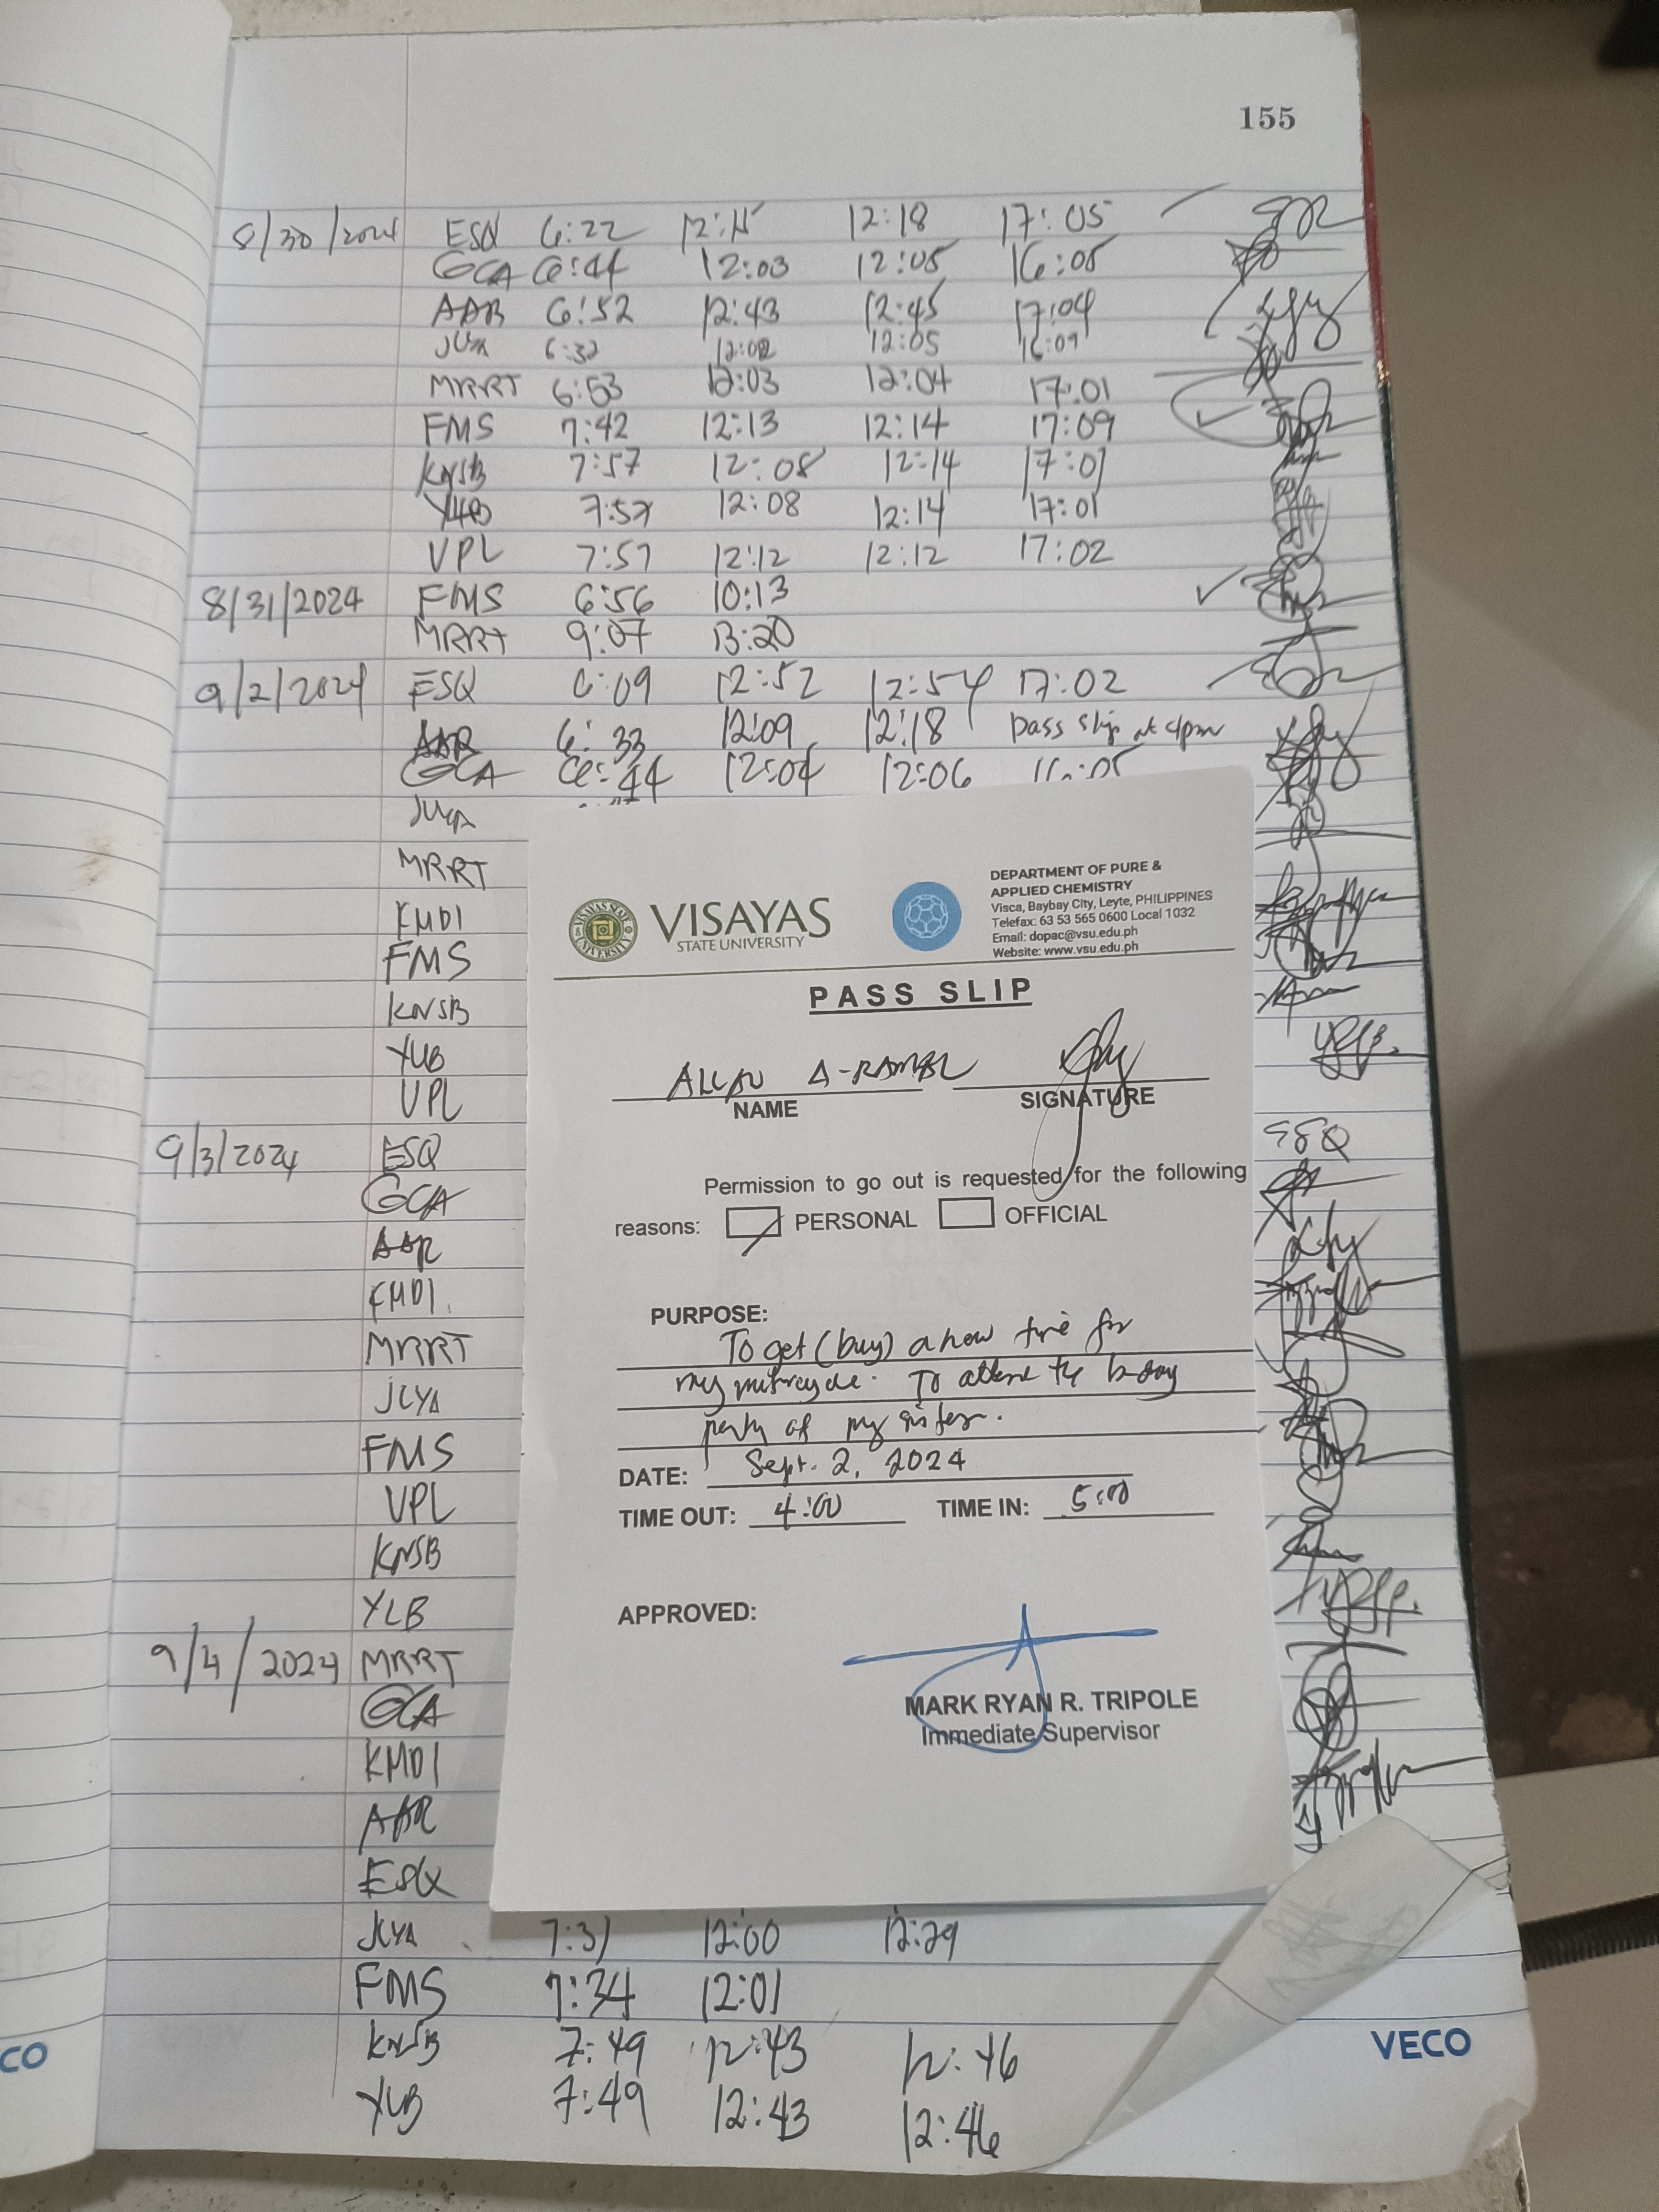 155
8/30/2024 ESQ 6:22 12:15 12:18 17:05
GCA 6:44 12:03 12:05 16:05
AAR 6:52 12:43 12:45 17:04
6:32 12:02 12:05 16:09
MRRT 6:53 12:03 12:04 17:01
FMS 7:42 12:13 12:14 17:09
KNSB 7:57 12:08 12:14 17:01
YLB 7:57 12:08 12:14 17:01
VPL 7:57 12:12 12:12 17:02
8/31/2024 FMS 6:56 10:13
MRRT 9:07 13:20
9/2/2024 ESQ 6:09 12:52 12:54 17:02
AAR 6:33 12:09 12:18 pass slip at 4pm
GCA 6:44 12:04 12:06 16:05
MRRT
KMDI
FMS
KNSB
YLB
VPL
9/3/2024 ESQ ESQ
GCA
AAR
KMDI
MRRT
JCYA
FMS
VPL
KNSB
YLB
9/4/2024 MRRT
GCA
KMDI
AAR
ESQ
7:31 12:00 12:29
FMS 7:34 12:01
KNSB 7:49 12:43 12:46
YLB 7:49 12:43 12:46
VECO
CO
VISAYAS
STATE UNIVERSITY
DEPARTMENT OF PURE &
APPLIED CHEMISTRY
Visca, Baybay City, Leyte, PHILIPPINES
Telefax: 63 53 565 0600 Local 1032
Email: dopac@vsu.edu.ph
Website: www.vsu.edu.ph
PASS SLIP
ALLAN A-RAMAL
NAME SIGNATURE
Permission to go out is requested for the following
reasons: PERSONAL OFFICIAL
PURPOSE:
To get (buy) a new tire for
my motorcycle. To attend the b-day
party of my sister.
DATE: Sept. 2, 2024
TIME OUT: 4:00 TIME IN: 5:00
APPROVED:
MARK RYAN R. TRIPOLE
Immediate Supervisor